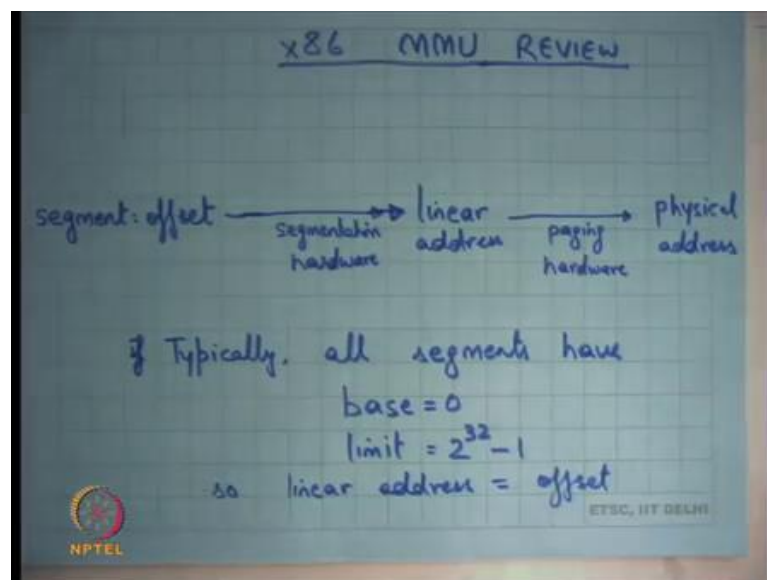 x86 MMU REVIEW
segment: offset → linear address → physical address
segmentation hardware paging hardware
Typically, all segments have
base = 0
limit = 2^32 - 1
so linear address = offset
ETSC, IIT DELHI
NPTEL